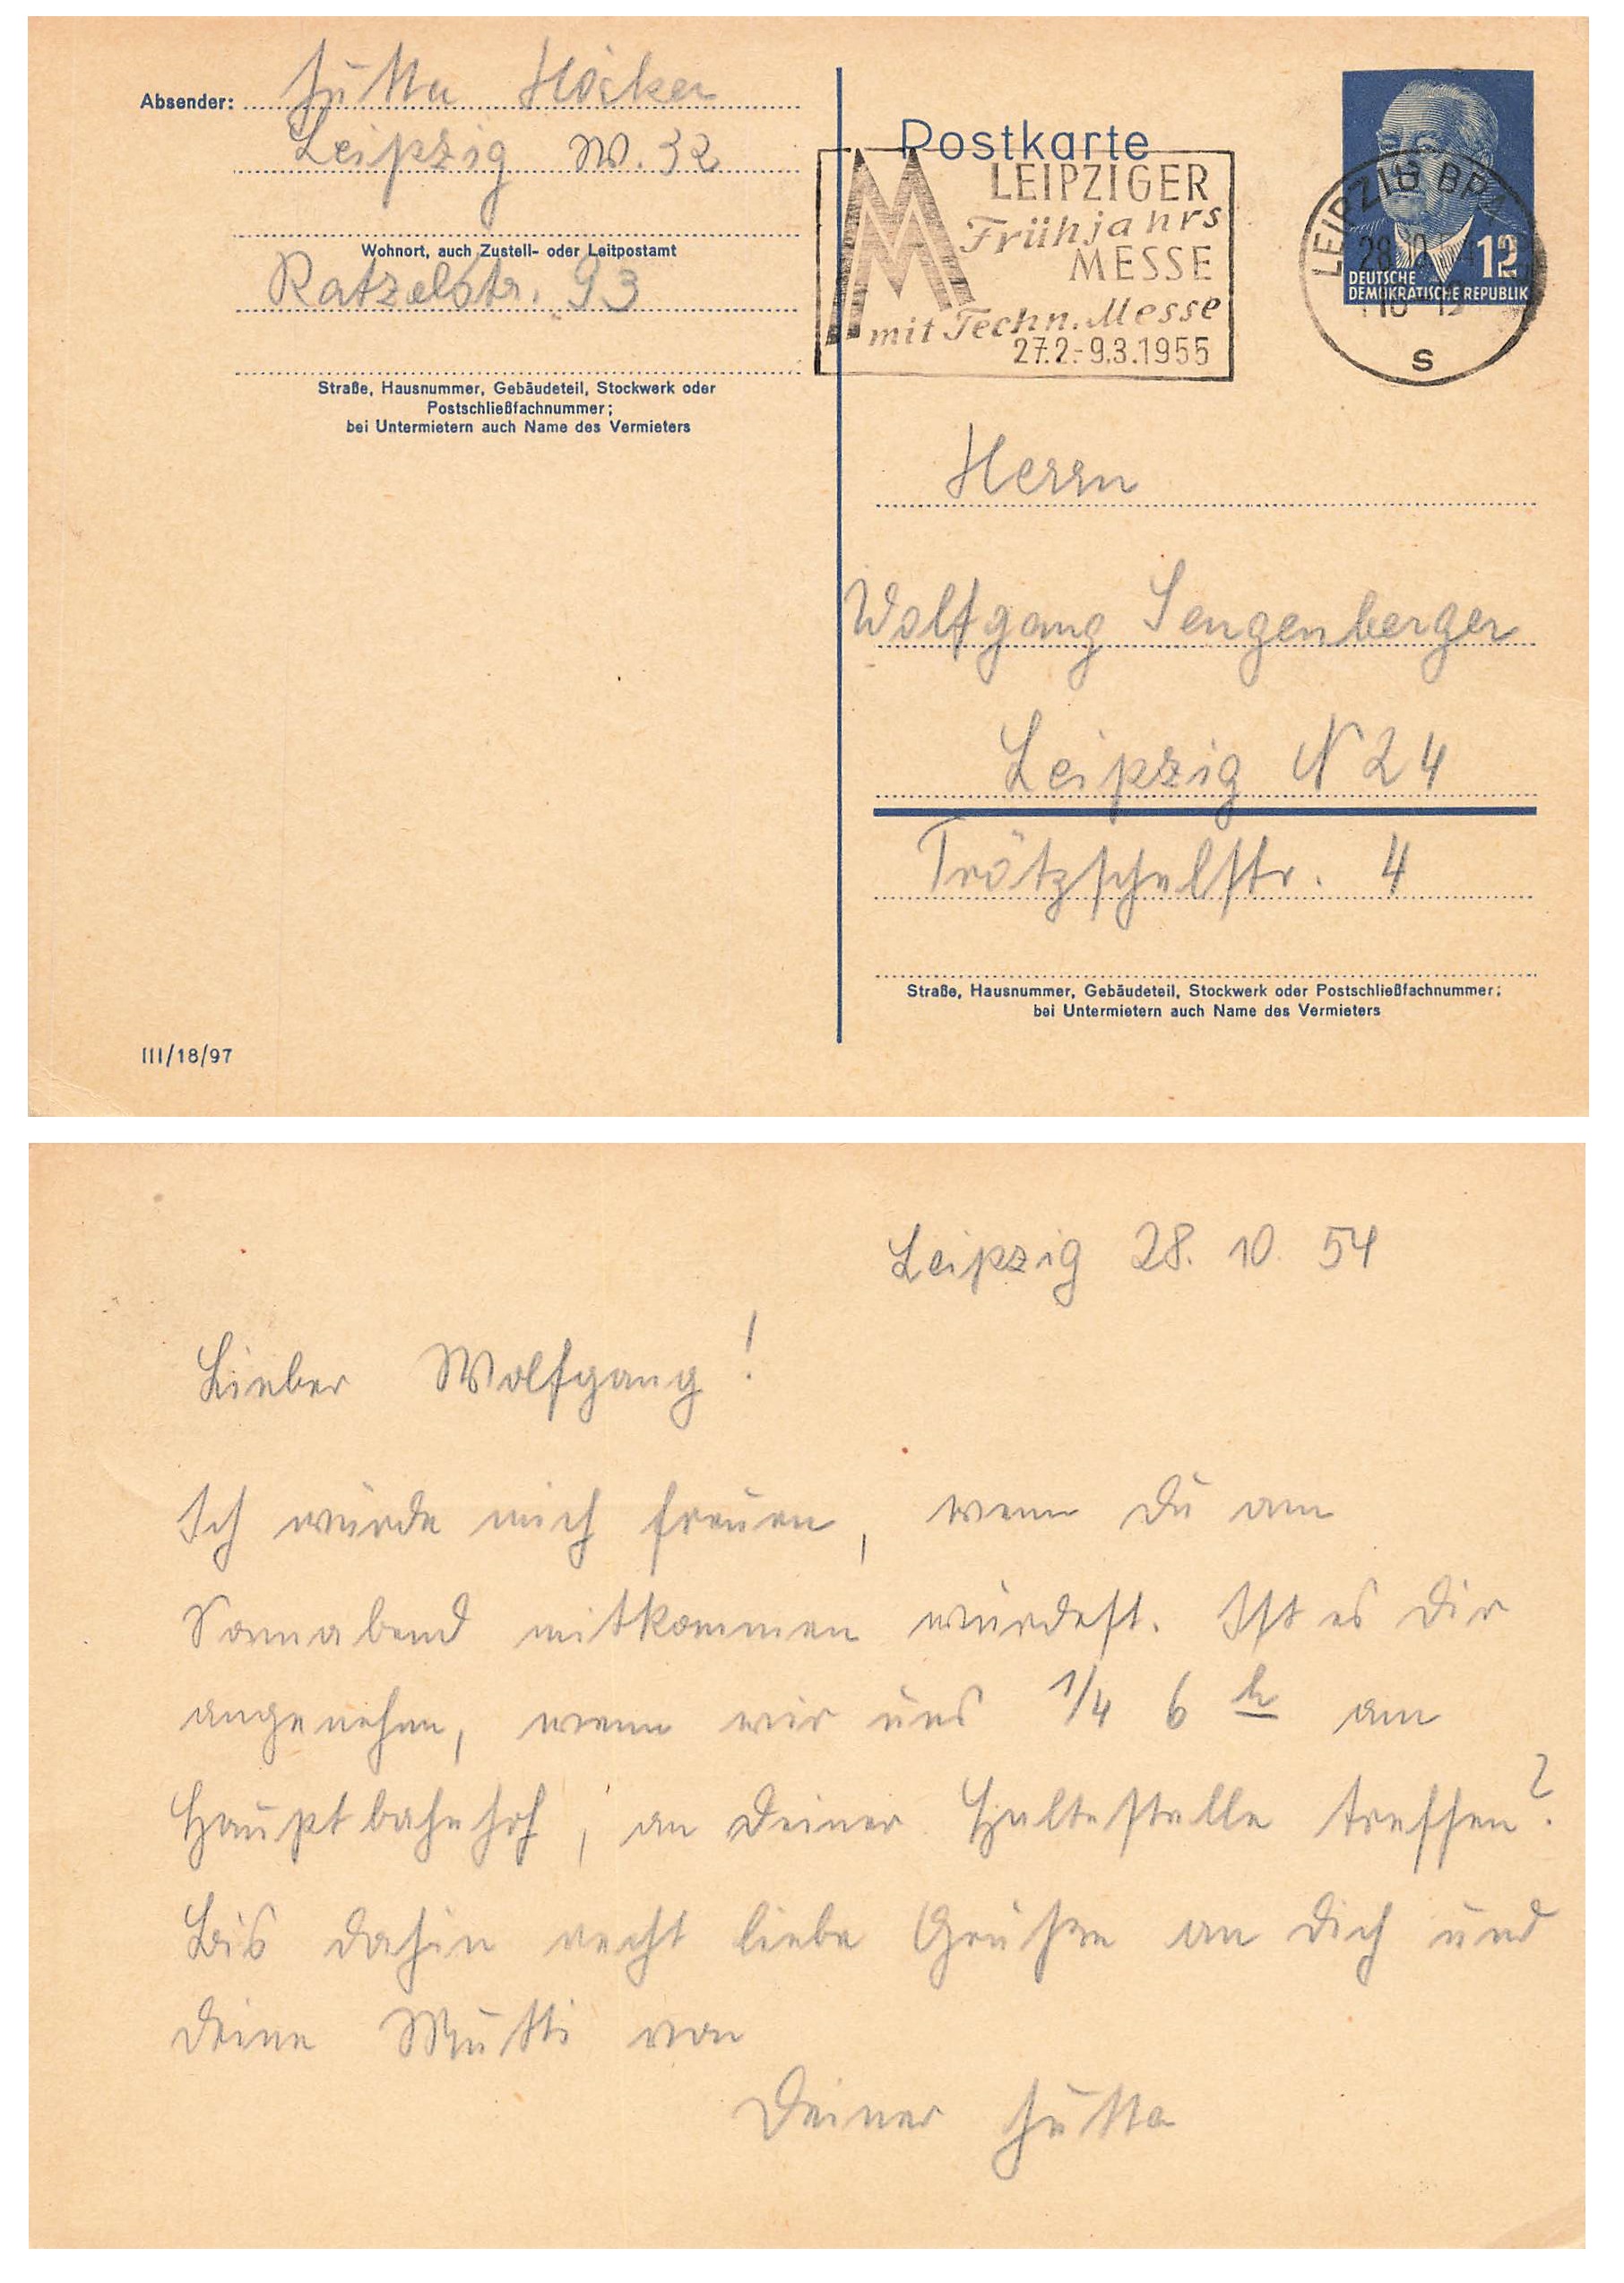 Absender: Jutta Höcker
Leipzig W. 32
Wohnort, auch Zustell- oder Leitpostamt
Ratzelstr. 93
Straße, Hausnummer, Gebäudeteil, Stockwerk oder
Postschließfachnummer;
bei Untermietern auch Name des Vermieters
III/18/97
Postkarte
LEIPZIGER
Frühjahrs
MESSE
mit Techn. Messe
27.2.-9.3.1955
LEIPZIG
28.10.
S
12
DEUTSCHE
DEMOKRATISCHE REPUBLIK
Herrn
Wolfgang Sengenberger
Leipzig N 24
Trötzschelstr. 4
Straße, Hausnummer, Gebäudeteil, Stockwerk oder Postschließfachnummer;
bei Untermietern auch Name des Vermieters
Leipzig 28. 10. 54
Lieber Wolfgang!
Ich würde mich freuen, wenn Du am
Sonnabend mitkommen würdest. Ist es Dir
angenehm, wenn wir uns 1/4 6 h am
Hauptbahnhof, an Deiner Haltestelle treffen?
Bis dahin recht liebe Grüße an Dich und
Deine Mutti von
Deiner Jutta